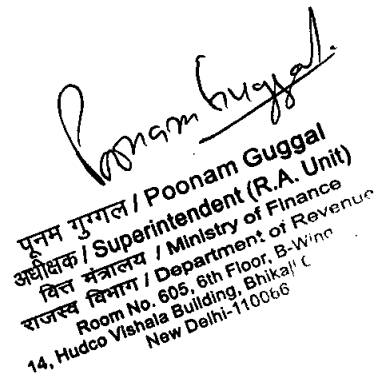 Poonam Guggal.
पूनम गुग्गल / Poonam Guggal
अधीक्षक / Superintendent (R.A. Unit)
वित्त मंत्रालय / Ministry of Finance
राजस्व विभाग / Department of Revenue
Room No. 605, 6th Floor, B-Wing
14, Hudco Vishala Building, Bhikaji
New Delhi-110066